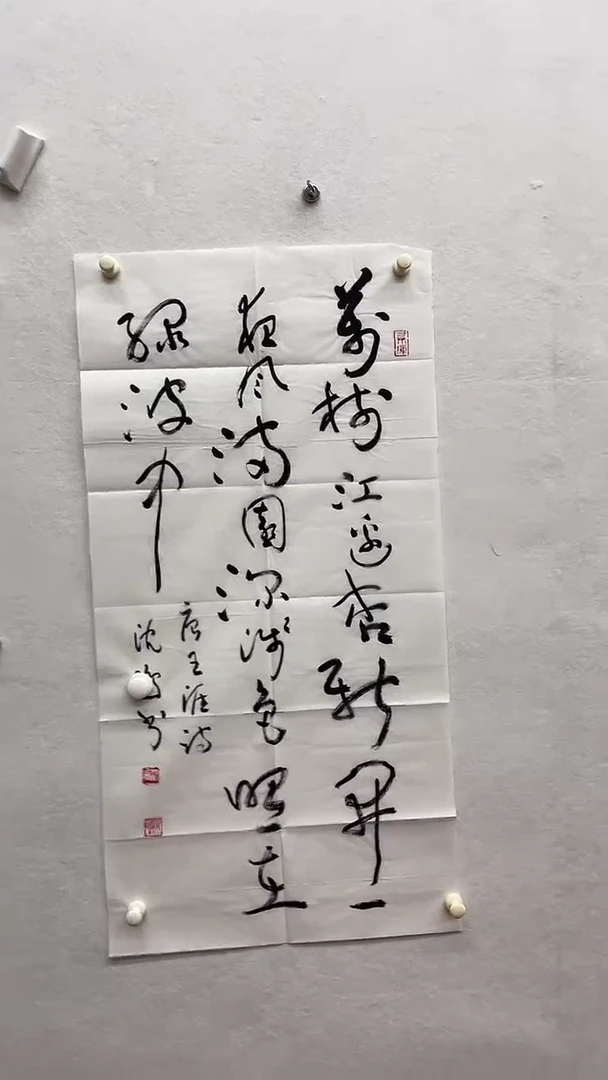 萬樹江邊杏新開一
夜风滿園深淺色照在
綠波中
唐王涯詩
沈 书